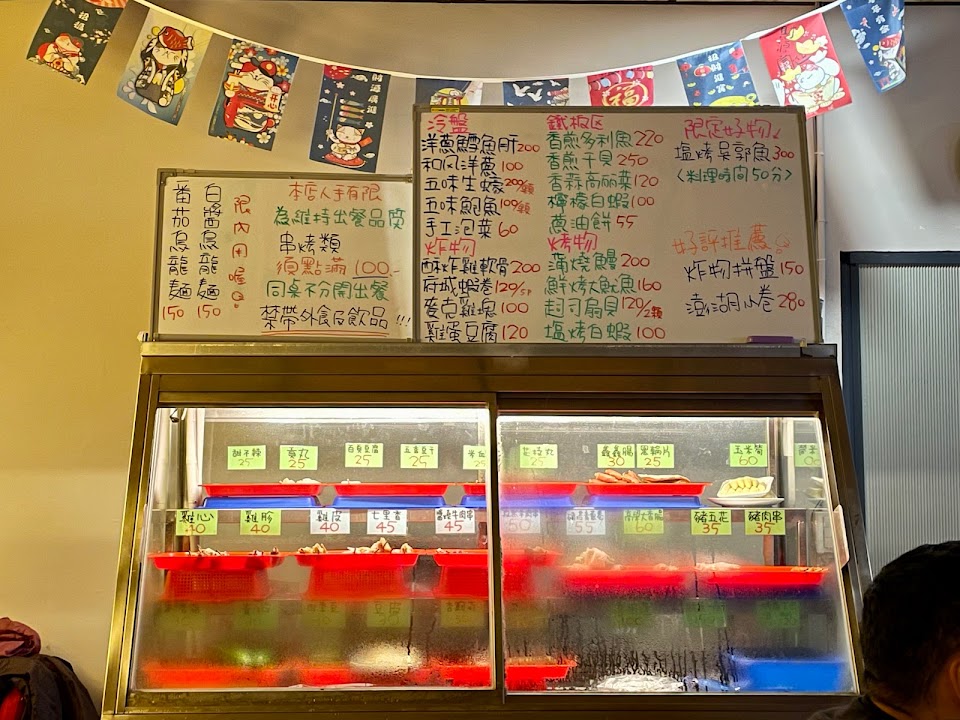 福
番茄烏龍麵 150
白醬烏龍麵 150
限內用喔
本店人手有限
為維持出餐品質
串烤類
須點滿 100.-
同桌不分開出餐
禁帶外食及飲品!!!
冷盤
洋蔥鱈魚肝 200
和風洋蔥 100
五味生蠔 200/顆
五味鮑魚 109/顆
手工泡菜 60
炸物
酥炸雞軟骨 200
府城蝦卷 120/5p
麥克雞塊 100
雞蛋豆腐 120
鐵板区
香煎多利魚 220
香煎干貝 250
香蒜高麗菜 120
檸檬白蝦 100
蔥油餅 55
烤物
蒲燒鰻 200
鮮烤大魷魚 160
起司扇貝 120/2顆
塩烤白蝦 100
限定好物
塩烤吳郭魚 300
〈料理時間50分〉
好評推薦
炸物拼盤 150
澎湖小卷 280
甜不辣 25
貢丸 25
百頁豆腐 25
五香豆干 25
米血 25
花枝丸 25
鑫鑫腸 30
黑輪片 25
玉米筍 60
雞心 40
雞胗 40
雞皮 40
七里香 45
醬燒牛肉串 45
50
55
60
豬五花 35
豬肉串 35
豆皮